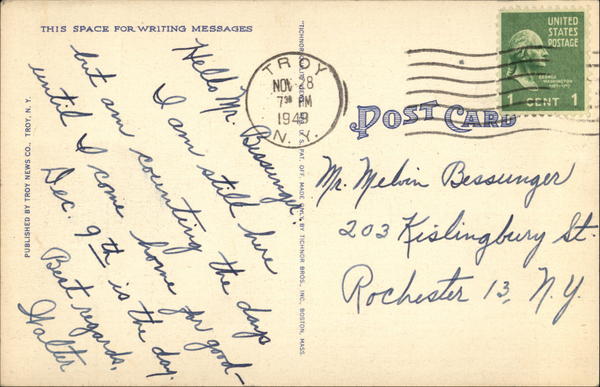 THIS SPACE FOR WRITING MESSAGES
Hello Mr. Bessunger:
I am still here
but am counting the days
until I come home for good—
Dec. 9th is the day.
Best regards,
Walter
PUBLISHED BY TROY NEWS CO., TROY, N. Y.
MADE ONLY BY TICHNOR BROS., INC., BOSTON, MASS.
TROY
NOV 8
7 30 PM
1949
N. Y.
UNITED
STATES
POSTAGE
GEORGE
WASHINGTON
1 CENT 1
POST CARD
Mr. Melvin Bessunger
203 Kislingbury St.
Rochester 13, N.Y.